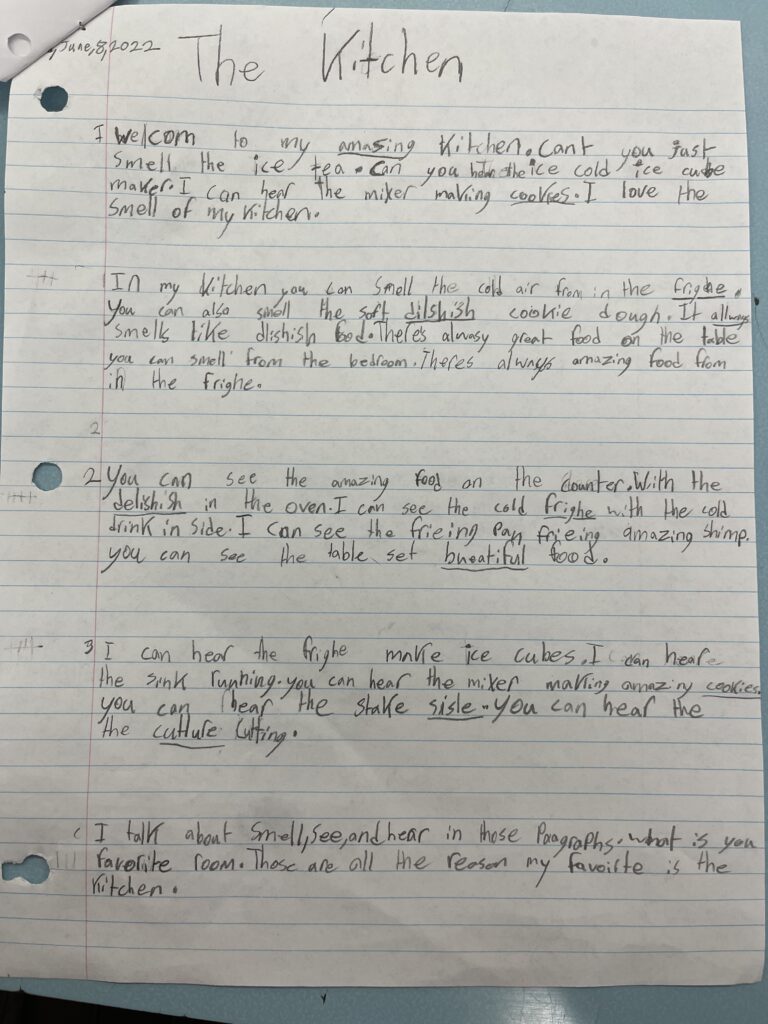 June,8,2022
The Kitchen
I welcom to my amasing Kitchen. Cant you just
smell the ice tea. Can you hear the ice cold ice cube
maker. I can hear the mixer making cookies. I love the
smell of my kitchen.
In my kitchen you can smell the cold air from in the frighe.
You can also smell the soft dilshish cookie dough. It allways
smells like dlishish food. There's alwasy great food on the table
you can smell from the bedroom. Theres always amazing food from
in the frighe.
2
2 You can see the amazing food on the counter. With the
delishish in the oven. I can see the cold frighe with the cold
drink in side. I can see the frieing pan frieing amazing shimp.
you can see the table set bueatiful food.
3 I can hear the frighe make ice cubes. I can heare
the sink running. you can hear the mixer making amazing cookies.
you can hear the stake sisle. you can hear the
the cutture cutting.
c I talk about smell, see, and hear in those Paragraphs. what is you
favorite room. Those are all the reason my favoirte is the
kitchen.